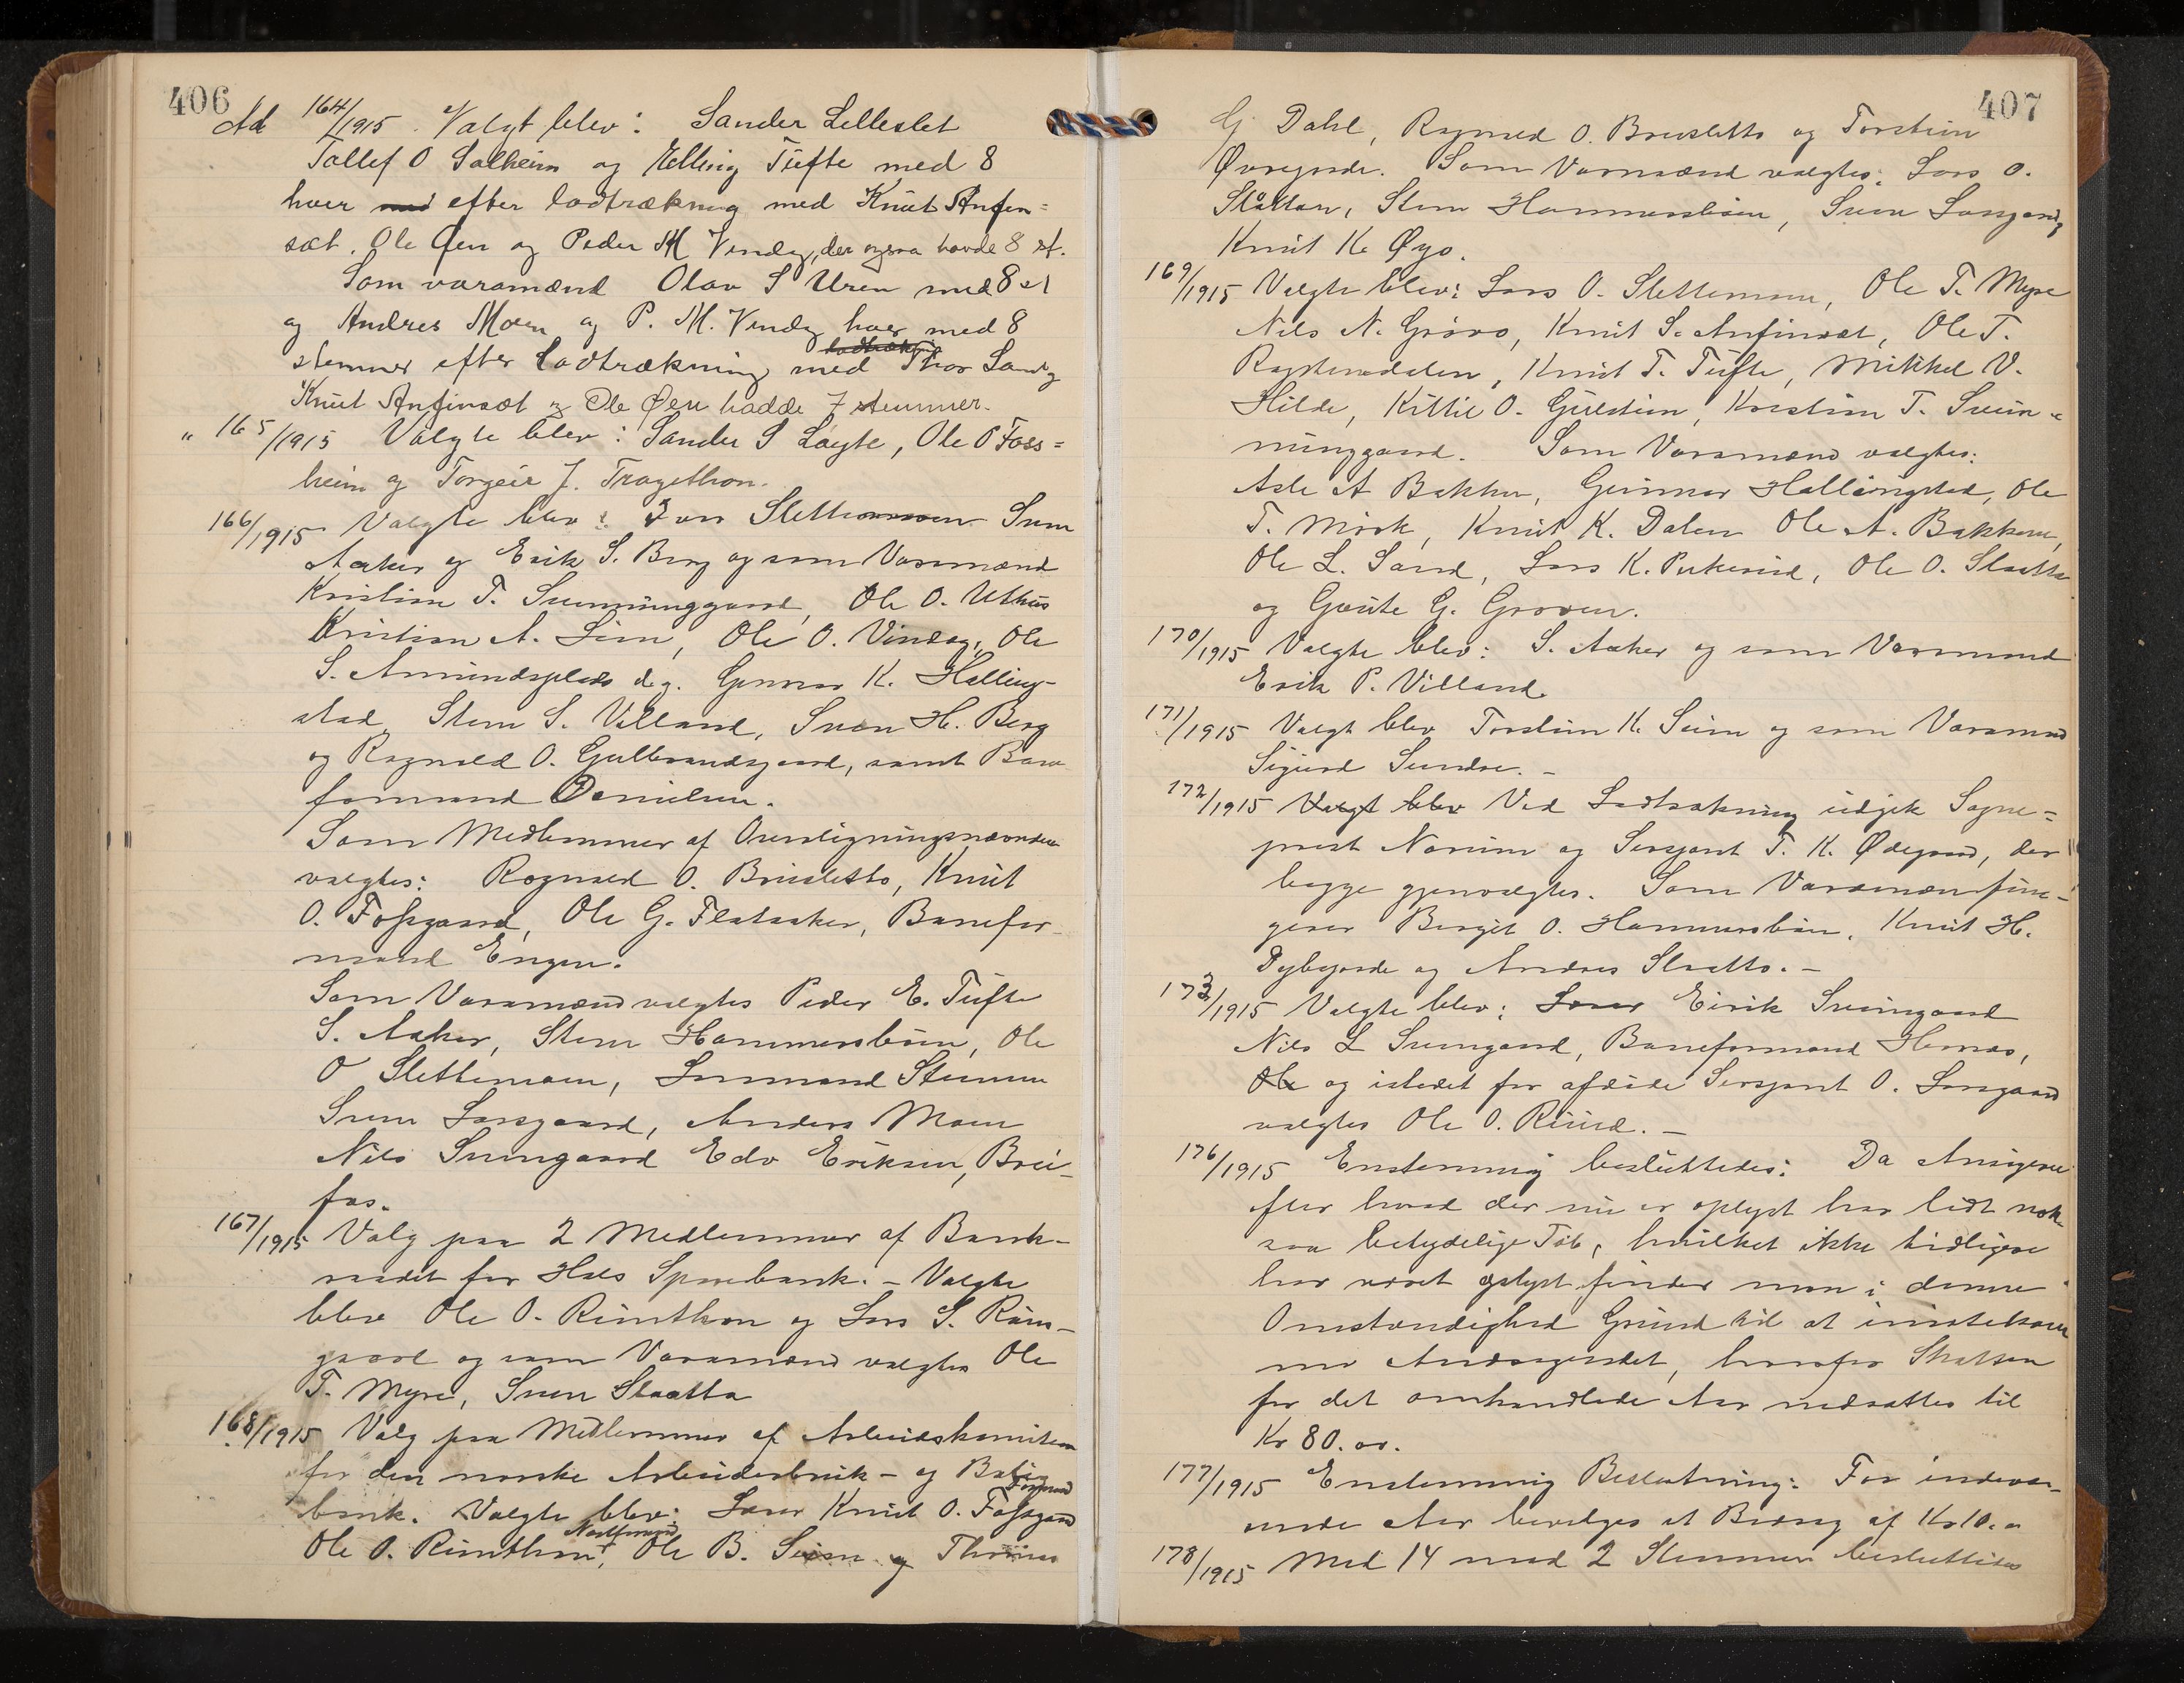 406
Ad 164/1915. Valgt blev: Sander Lilleslet
Tollef O Solheim og Elling Tufte med 8
hver med efter lodtrækning med Knut Anfin=
sæt. Ole Øen og Peder M Vindeg, der ogsaa havde 8 st.
Som varamænd Olav S Uren med 8 st
og Andres Moen og P. M. Vindeg hver med 8
stemmer efter lodtrækning med Thor Sando
Knut Anfinsæt og Ole Øen hadde 7 stemmer.
" 165/1915 Valgte blev: Sander S Løyte, Ole O Foss=
heim og Torgeir J. Tragethon.
166/1915 Valgte blev: Slettemoen Sven
Aaker og Erik S. Berg og som Varamænd
Kristian T. Sveinunggaard, Ole O. Uthus
Kristian A. Lien, Ole O. Vindeg, Ole
S. Amundsplads d.y. Gunnar K. Halling-
stad, Sten S. Villand, Sven H. Berg
og Ragnvald O. Gulbrandsgaard, samt Bane
formand Danielsen.
Som Medlemmer af Overligningsnævnden
valgtes: Ragnvald O. Brusletto, Knut
O. Fossgaard, Ole G. Flataaker, Banefor-
mand Engen.
Som Varamænd valgtes Peder E. Tufte
S. Aaker, Sten Hammersbøen, Ole
O Slettemoen, Lensmand Stensen
Sven Larsgaard, Anders Moen
Nils Sveingaard Edv Eriksen, Brei-
fos.
167/1915 Valg paa 2 Medlemmer af Bank-
raadet for Hols Sparebank. - Valgte
blev Ole O. Rimthon og Lars S. Raun-
gaard og som Varamænd valgtes Ole
T. Myre, Sven Slaatta
168/1915 Valg paa Medlemmer af Arbeidskomiteen
for den norske Arbeiderbruk - og Bolig
Formand
bank. Valgte blev: Lærer Knut O. Fossgaard
Næstformand
Ole O. Rimthon, Ole B. Seim og
407
G. Dahl, Ragnvald O. Brusletto og Torstein
Øvregarde. Som Varamænd valgtes: Lars O.
Slåtten, Sten Hammersbøen, Sven Larsgard,
Knut K. Øyo.
169/1915 Valgte blev: Lars O. Slettemoen, Ole T. Myre
Nils N. Grøvo, Knut S. Anfinsæt, Ole T.
Raggsteindalen, Knut T. Tufte, Mikkel V.
Hilde, Kittil O. Gulstein, Kristian T. Svein=
unggaard. Som Varamænd valgtes:
Asle A Bakken, Gunnar Hallingstad, Ole
T. Mørk, Knut K. Dalen Ole A. Bakken,
Ole L. Sand, Lars K. Pukerud, Ole O. Slaatta
og Gaute G. Groven.
170/1915 Valgte blev: S. Aaker og som Varamand
Erik P. Villand.
171/1915 Valgt blev Torstein K. Seim og som Varamand
Sigurd Sundre. -
172/1915 Valgt blev Ved Lodtrækning udgik Sogne=
prest Norum og Sersjant T. K. Ødegaard, der
begge gjenvalgtes. Som Varamænd fun-
gerer Birgit O. Hammersbøen, Knut H.
Dybegarde og Andres Slaatto. -
173/1915 Valgte blev: Lærer Eirik Sveingaard
Nils L Sveingaard, Baneformand Hernæs,
Ole og istedet for afdøde Sersjant O. Larsgaard
valgtes Ole O. Ruud. -
176/1915 Enstemmig besluttedes: Da Ansøgeren
efter hvad der nu er oplyst har lidt nok
saa betydelige Tab, hvilket ikke tidligere
har været oplyst finder man i denne
Omstændighed Grund til at imøtekomme
Andragendet, hvorfor Skatten
for det omhandlede Aar nedsættes til
Kr 80.00.
177/1915 Enstemmig Beslutning: For indevær-
ende Aar bevilges et Bidrag af Kr 10.00
178/1915 Med 14 mod 2 Stemmer besluttedes